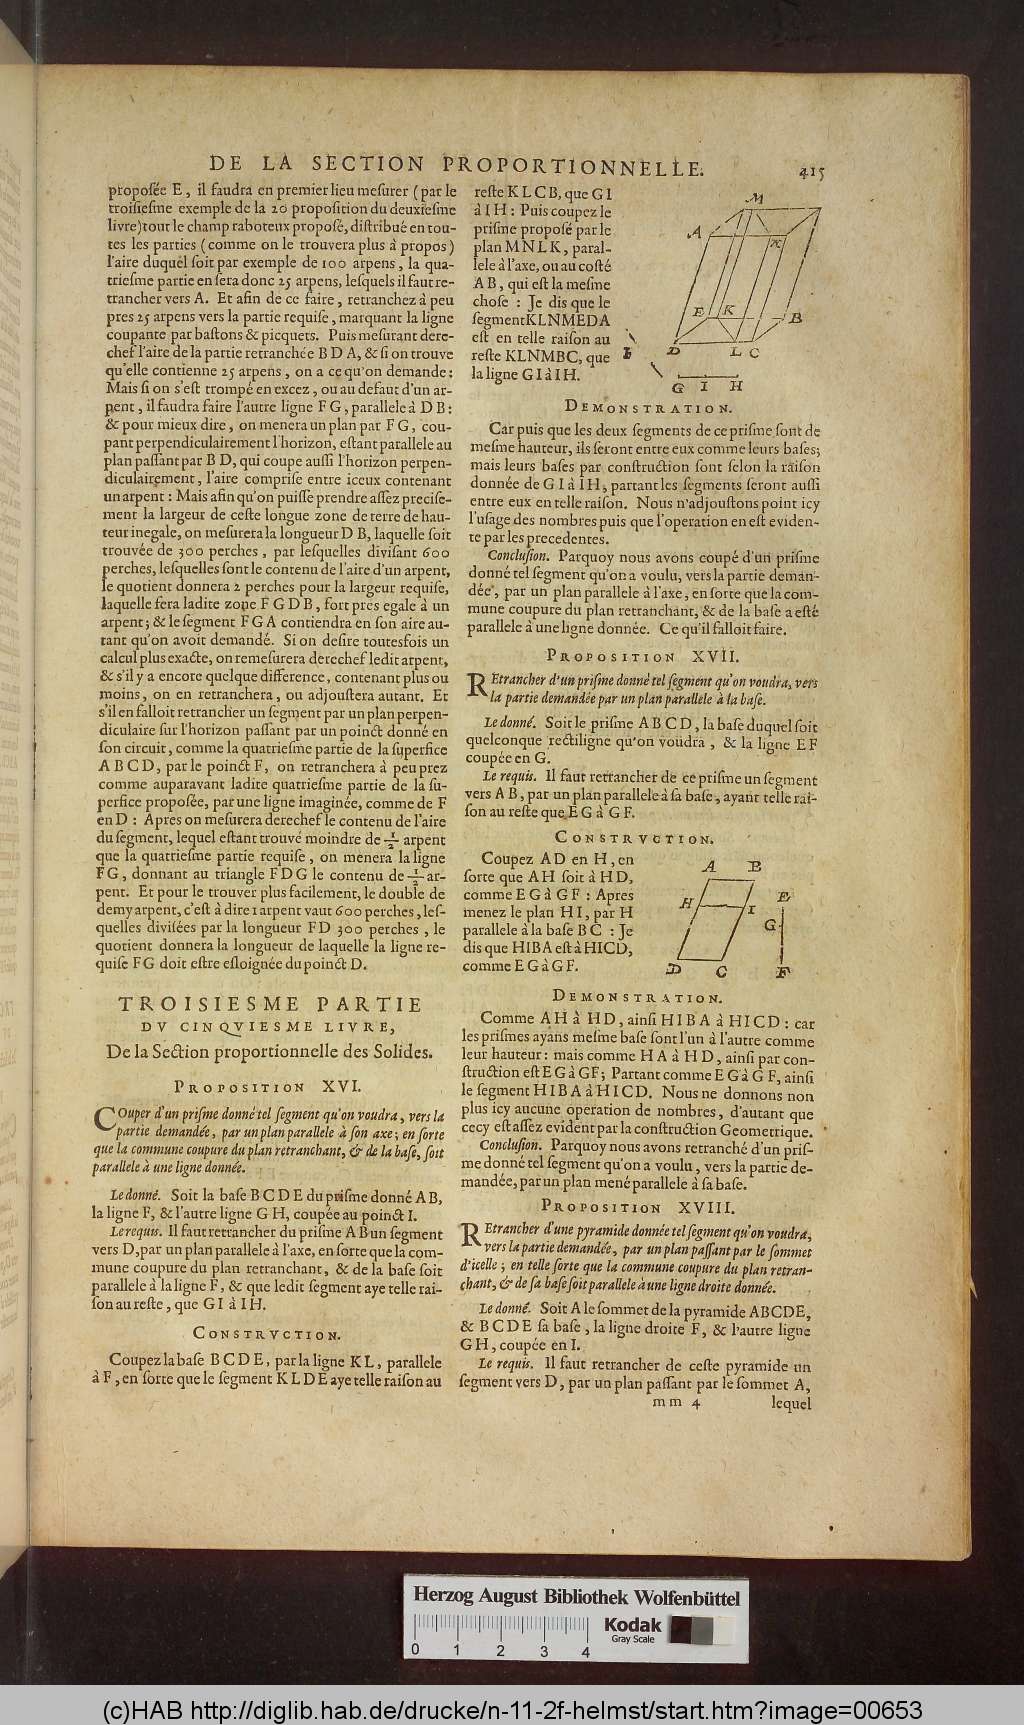 DE LA SECTION PROPORTIONNELLE. 415
proposée E, il faudra en premier lieu mesurer (par le
troisiesme exemple de la 20 proposition du deuxiesme
livre) tout le champ raboteux proposé, distribué en tou-
tes les parties (comme on le trouvera plus à propos)
l'aire duquel soit par exemple de 100 arpens, la qua-
triesme partie en sera donc 25 arpens, lesquels il faut re-
trancher vers A. Et afin de ce faire, retranchez à peu
pres 25 arpens vers la partie requise, marquant la ligne
coupante par bastons & picquets. Puis mesurant dere-
chef l'aire de la partie retranchée B D A, & si on trouve
qu'elle contienne 25 arpens, on a ce qu'on demande:
Mais si on s'est trompé en excez, ou au defaut d'un ar-
pent, il faudra faire l'autre ligne F G, parallele à D B:
& pour mieux dire, on menera un plan par F G, cou-
pant perpendiculairement l'horizon, estant parallele au
plan passant par B D, qui coupe aussi l'horizon perpen-
diculairement, l'aire comprise entre iceux contenant
un arpent: Mais afin qu'on puisse prendre assez precise-
ment la largeur de ceste longue zone de terre de hau-
teur inegale, on mesurera la longueur D B, laquelle soit
trouvée de 300 perches, par lesquelles divisant 600
perches, lesquelles sont le contenu de l'aire d'un arpent,
le quotient donnera 2 perches pour la largeur requise,
laquelle sera ladite zone F G D B, fort pres egale à un
arpent; & le segment F G A contiendra en son aire au-
tant qu'on avoit demandé. Si on desire toutesfois un
calcul plus exacte, on remesurera derechef ledit arpent,
& s'il y a encore quelque difference, contenant plus ou
moins, on en retranchera, ou adjoustera autant. Et
s'il en falloit retrancher un segment par un plan perpen-
diculaire sur l'horizon passant par un poinct donné en
son circuit, comme la quatriesme partie de la superfice
A B C D, par le poinct F, on retranchera à peu prez
comme auparavant ladite quatriesme partie de la su-
perfice proposée, par une ligne imaginée, comme de F
en D: Apres on mesurera derechef le contenu de l'aire
du segment, lequel estant trouvé moindre de 1/2 arpent
que la quatriesme partie requise, on menera la ligne
FG, donnant au triangle FDG le contenu de 1/2 ar-
pent. Et pour le trouver plus facilement, le double de
demy arpent, c'est à dire 1 arpent vaut 600 perches, les-
quelles divisées par la longueur FD 300 perches, le
quotient donnera la longueur de laquelle la ligne re-
quise FG doit estre esloignée du poinct D.
TROISIESME PARTIE
DV CINQVIESME LIVRE,
De la Section proportionnelle des Solides.
PROPOSITION XVI.
COuper d'un prisme donné tel segment qu'on voudra, vers la
partie demandée, par un plan parallele à son axe; en sorte
que la commune coupure du plan retranchant, & de la base, soit
parallele à une ligne donnée.
Le donné. Soit la base B C D E du prisme donné A B,
la ligne F, & l'autre ligne G H, coupée au poinct I.
Le requis. Il faut retrancher du prisme A B un segment
vers D, par un plan parallele à l'axe, en sorte que la com-
mune coupure du plan retranchant, & de la base soit
parallele à la ligne F, & que ledit segment aye telle rai-
son au reste, que G I à I H.
CONSTRVCTION.
Coupez la base B C D E, par la ligne K L, parallele
à F, en sorte que le segment K L D E aye telle raison au
reste K L C B, que G I
à I H: Puis coupez le
prisme proposé par le
plan M N L K, paral-
lele à l'axe, ou au costé
A B, qui est la mesme
chose: Je dis que le
segment KLNMEDA
est en telle raison au
reste KLNMBC, que
la ligne G I à I H.
M
A
N
E K
B
D L C
F
G I H
DEMONSTRATION.
Car puis que les deux segments de ce prisme sont de
mesme hauteur, ils seront entre eux comme leurs bases;
mais leurs bases par construction sont selon la raison
donnée de G I à I H, partant les segments seront aussi
entre eux en telle raison. Nous n'adjoustons point icy
l'usage des nombres puis que l'operation en est eviden-
te par les precedentes.
Conclusion. Parquoy nous avons coupé d'un prisme
donné tel segment qu'on a voulu, vers la partie deman-
dée, par un plan parallele à l'axe, en sorte que la com-
mune coupure du plan retranchant, & de la base a esté
parallele à une ligne donnée. Ce qu'il falloit faire.
PROPOSITION XVII.
REtrancher d'un prisme donné tel segment qu'on voudra, vers
la partie demandée par un plan parallele à la base.
Le donné. Soit le prisme A B C D, la base duquel soit
quelconque rectiligne qu'on voudra, & la ligne E F
coupée en G.
Le requis. Il faut retrancher de ce prisme un segment
vers A B, par un plan parallele à sa base, ayant telle rai-
son au reste que E G à G F.
CONSTRVCTION.
Coupez AD en H, en
sorte que AH soit à HD,
comme E G à G F: Apres
menez le plan H I, par H
parallele à la base B C: Je
dis que HIBA est à HICD,
comme E G à G F.
A B
H I E
G
D C F
DEMONSTRATION.
Comme A H à H D, ainsi H I B A à H I C D: car
les prismes ayans mesme base sont l'un à l'autre comme
leur hauteur: mais comme H A à H D, ainsi par con-
struction est E G à G F; Partant comme E G à G F, ainsi
le segment H I B A à H I C D. Nous ne donnons non
plus icy aucune operation de nombres, d'autant que
cecy est assez evident par la construction Geometrique.
Conclusion. Parquoy nous avons retranché d'un pris-
me donné tel segment qu'on a voulu, vers la partie de-
mandée, par un plan mené parallele à sa base.
PROPOSITION XVIII.
REtrancher d'une pyramide donnée tel segment qu'on voudra,
vers la partie demandée, par un plan passant par le sommet
d'icelle; en telle sorte que la commune coupure du plan retran-
chant, & de sa base soit parallele à une ligne droite donnée.
Le donné. Soit A le sommet de la pyramide ABCDE,
& B C D E sa base, la ligne droite F, & l'autre ligne
G H, coupée en I.
Le requis. Il faut retrancher de ceste pyramide un
segment vers D, par un plan passant par le sommet A,
mm 4 lequel
Herzog August Bibliothek Wolfenbüttel
Kodak
Gray Scale
0 1 2 3 4
(c)HAB http://diglib.hab.de/drucke/n-11-2f-helmst/start.htm?image=00653